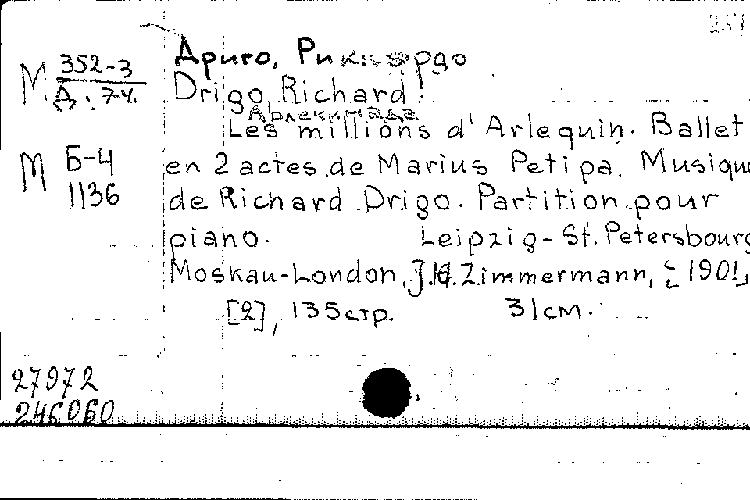 237
М 352-3
Д. 7-4.
Дриго, Риккардо
Drigo, Richard!
Арлекинада
Les millions d'Arlequin. Ballet
М Б-4
1136
en 2 actes de Marius Petipa. Musique
de Richard Drigo. Partition pour
piano. Leipzig-St. Petersbourg
Moskau-London, J.H. Zimmermann, [1901]
[2], 135 стр. 31 см.
27972
246060